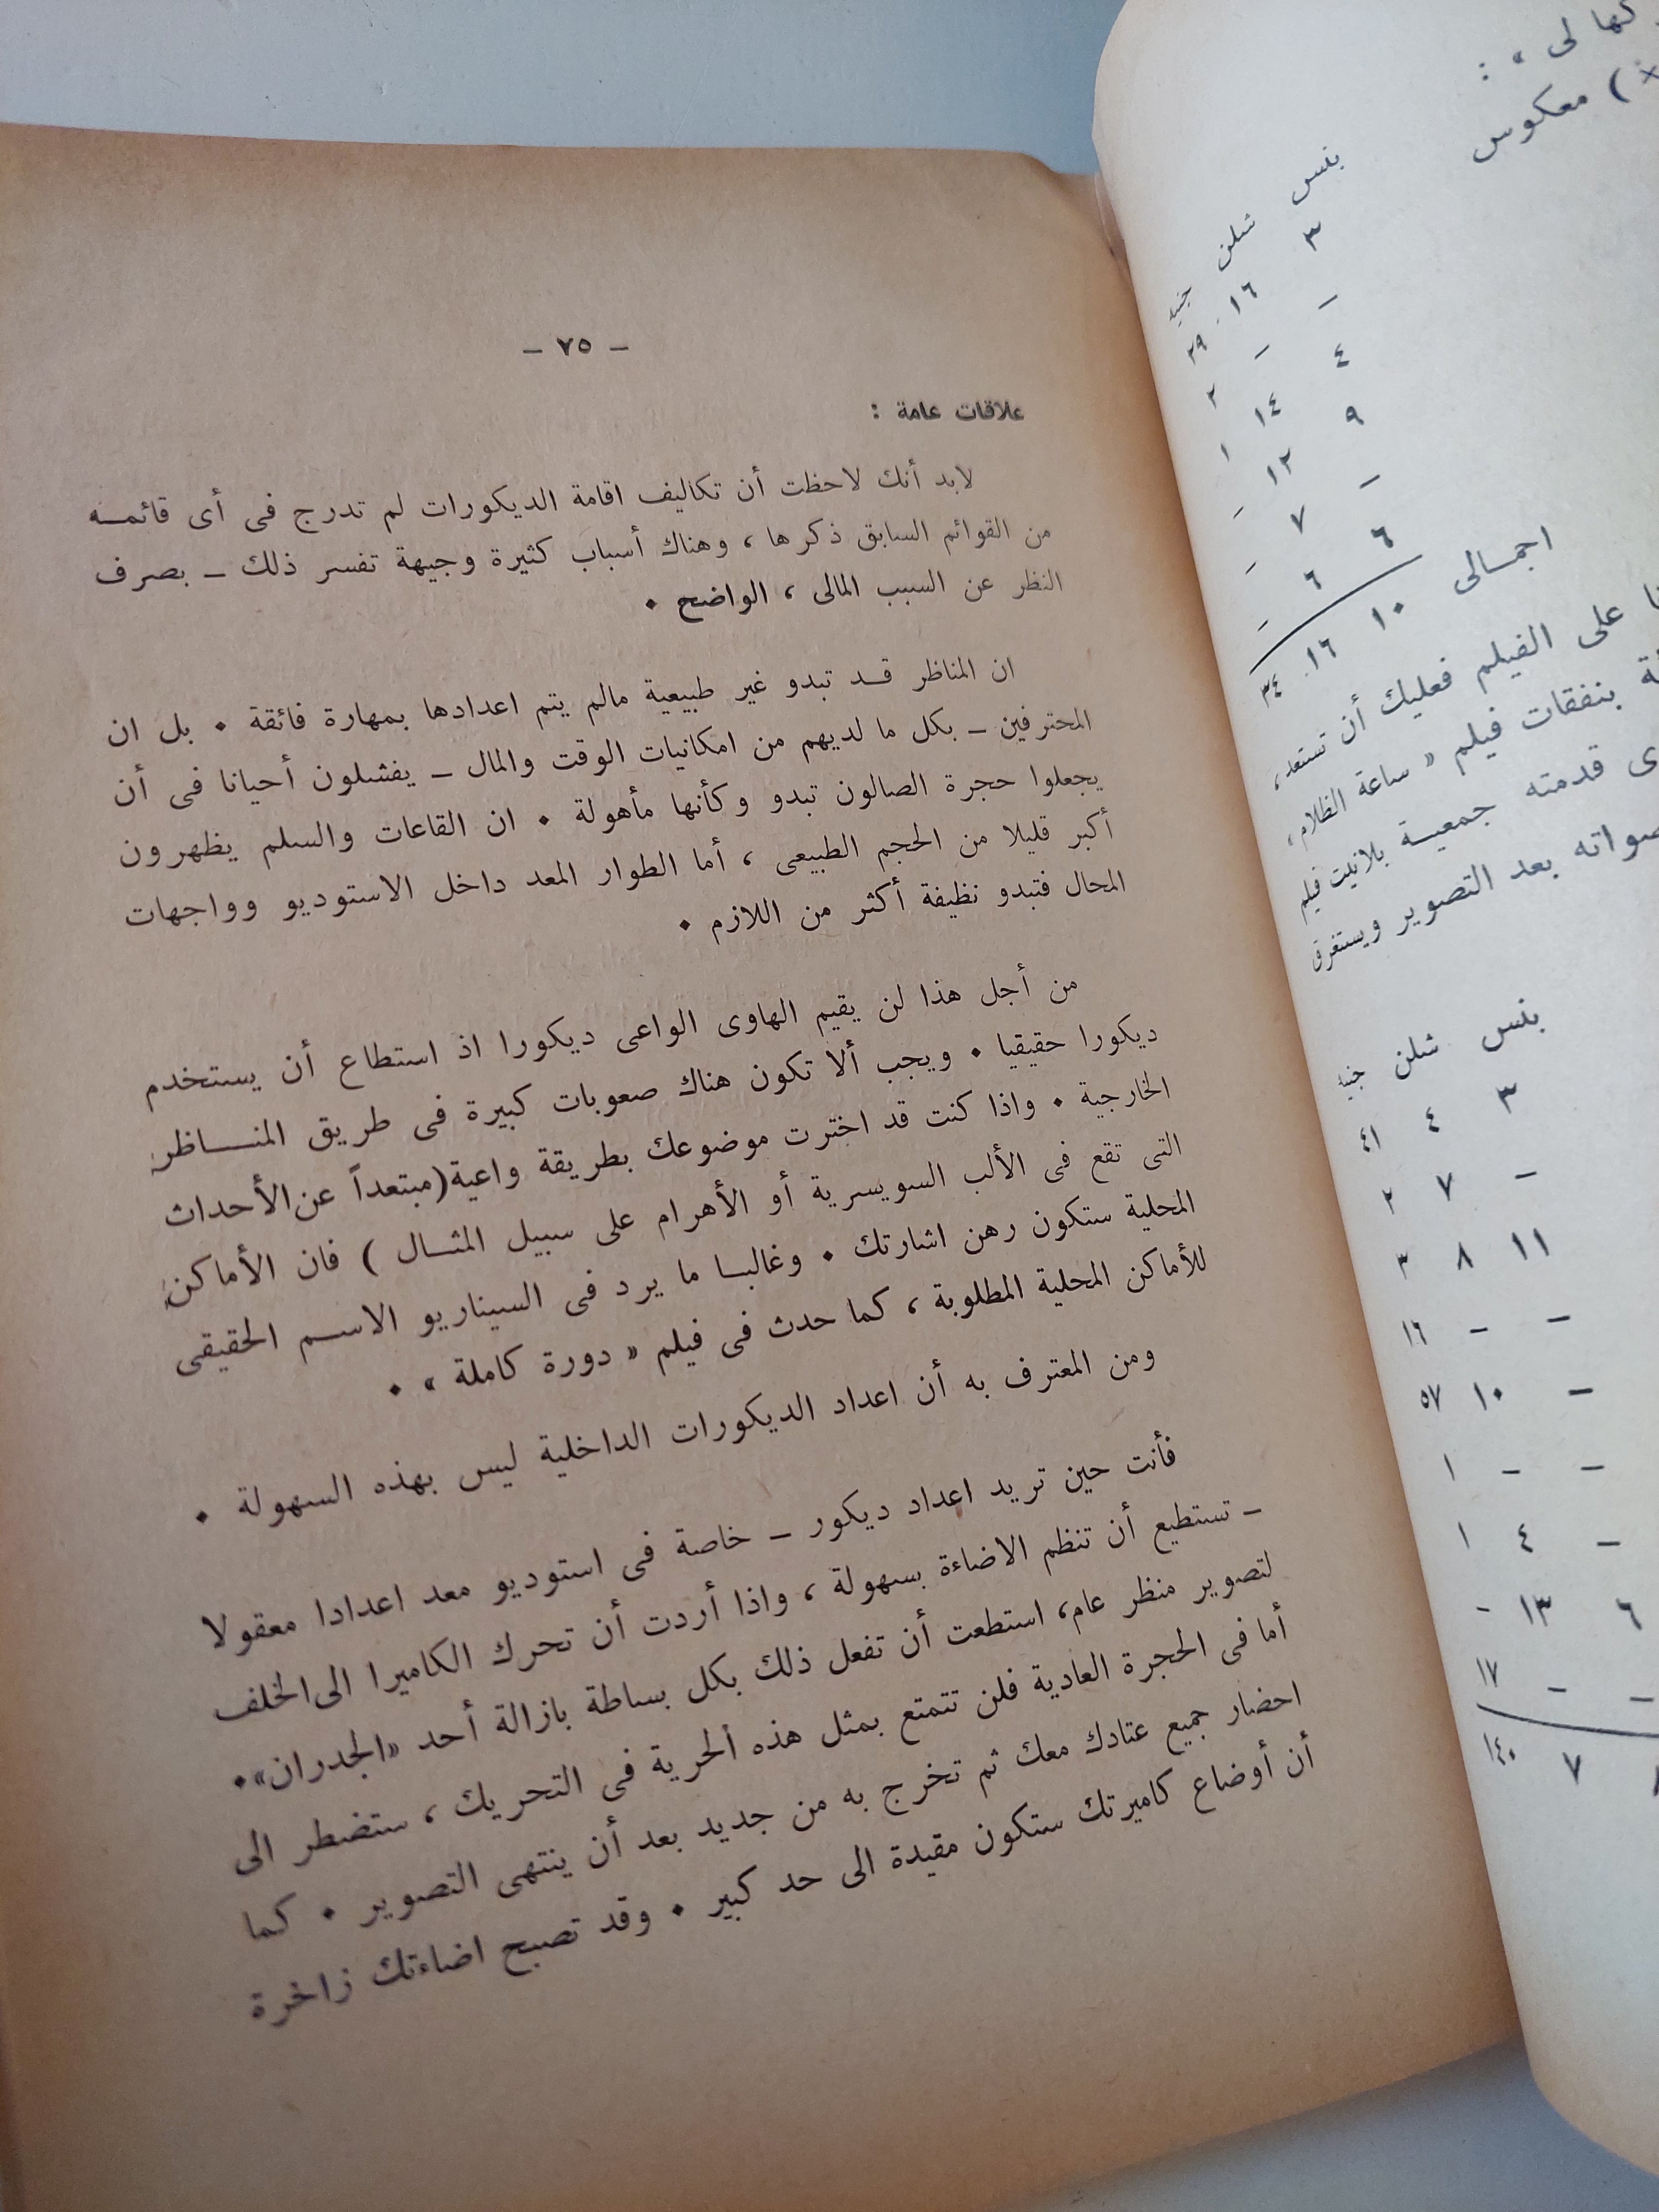 كها لى » :
) معكوس
بنس شلن جنيه
٣ ١٦ ٢٩
– – ٢
٤ ١٤ ١
٩ ١٢ –
– ٧ –
٦ ٦ –
اجمالى ١٠ ١٦ ٣٤
على الفيلم فعليك أن تستعد ،
بنفقات فيلم « ساعة الظلام »
قدمته جمعية بلانيت فيلم
بعد التصوير ويستغرق
بنس شلن جنيه
٣ ٤ ٤١
– ٧ ٢
١١ ٨ ٣
– – ١٦
– ١٠ ٥٧
– – ١
– ٤ ١
٦ ١٣ –
– – ١٧
٧ ١٤٠
– ٧٥ –
علاقات عامة :
لابد أنك لاحظت أن تكاليف اقامة الديكورات لم تدرج فى أى قائمة
من القوائم السابق ذكرها ، وهناك أسباب كثيرة وجيهة تفسر ذلك – بصرف
النظر عن السبب المالى ، الواضح .
ان المناظر قد تبدو غير طبيعية مالم يتم اعدادها بمهارة فائقة . بل ان
المحترفين – بكل ما لديهم من امكانيات الوقت والمال – يفشلون أحيانا فى أن
يجعلوا حجرة الصالون تبدو وكأنها مأهولة . ان القاعات والسلم يظهرون
أكبر قليلا من الحجم الطبيعى ، أما الطوار المعد داخل الاستوديو وواجهات
المحال فتبدو نظيفة أكثر من اللازم .
من أجل هذا لن يقيم الهاوى الواعى ديكورا اذ استطاع أن يستخدم
ديكورا حقيقيا . ويجب ألا تكون هناك صعوبات كبيرة فى طريق المناظر
الخارجية . واذا كنت قد اخترت موضوعك بطريقة واعية (مبتعداً عن الأحداث
التى تقع فى الألب السويسرية أو الأهرام على سبيل المثال ) فان الأماكن
المحلية ستكون رهن اشارتك . وغالبا ما يرد فى السيناريو الاسم الحقيقى
للأماكن المحلية المطلوبة ، كما حدث فى فيلم « دورة كاملة » .
ومن المعترف به أن اعداد الديكورات الداخلية ليس بهذه السهولة .
فأنت حين تريد اعداد ديكور – خاصة فى استوديو معد اعدادا معقولا
– تستطيع أن تنظم الاضاءة بسهولة ، واذا أردت أن تحرك الكاميرا الى الخلف
لتصوير منظر عام، استطعت أن تفعل ذلك بكل بساطة بازالة أحد «الجدران».
أما فى الحجرة العادية فلن تتمتع بمثل هذه الحرية فى التحريك ، ستضطر الى
احضار جميع عتادك معك ثم تخرج به من جديد بعد أن ينتهى التصوير . كما
أن أوضاع كاميرتك ستكون مقيدة الى حد كبير . وقد تصبح اضاءتك زاخرة